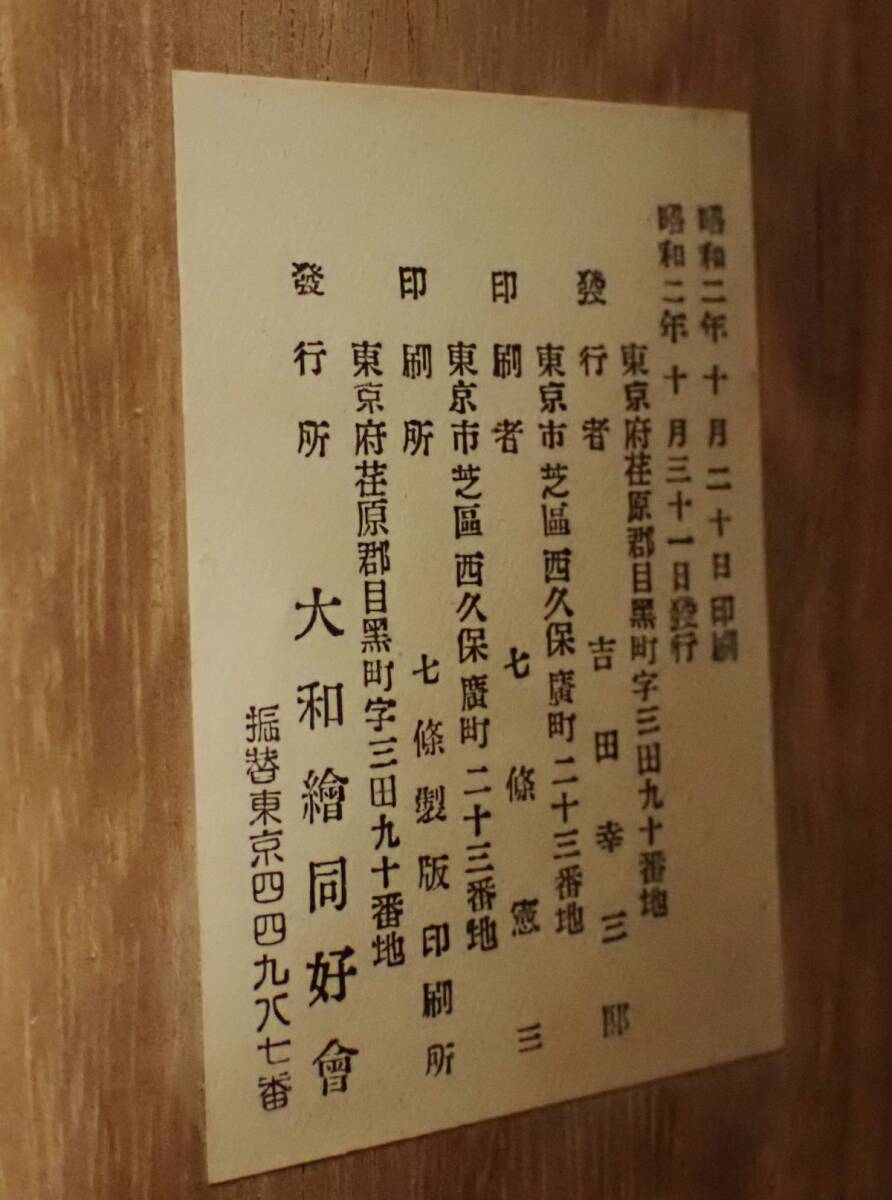 昭和二年十月二十日印刷
昭和二年十月三十一日發行
東京府荏原郡目黑町字三田九十番地
發行者 吉田幸三郎
東京市芝區西久保廣町二十三番地
印刷者 七條憲三
東京市芝區西久保廣町二十三番地
印刷所 七條製版印刷所
東京府荏原郡目黑町字三田九十番地
發行所 大和繪同好會
振替東京四四九八七番